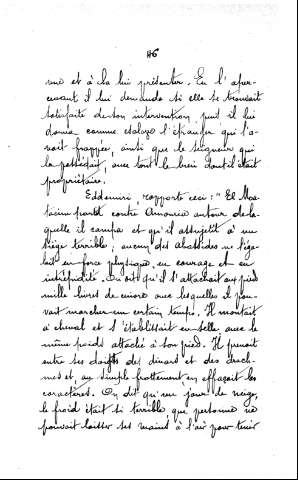 46
une et à la lui présenter. En l'aper-
cevant il lui demanda si elle se trouvait
satisfaite de son intervention, puis il lui
donna comme esclave l'étranger qui l'a-
vait frappée, ainsi que le seigneur qui
la possédait, avec tout le bien dont il était
propriétaire.
Eddemiri, rapporte ceci : " El Mos-
tacim partit contre Amouria autour de la-
quelle il campa et qu'il assujetit à un
siège terrible ; aucun des abassides ne l'éga-
lait en force physique, en courage et en
intrépidité. On dit qu'il s'attachait aux pieds
mille livres de cuivre avec lesquelles il pou-
vait marcher un certain temps. Il montait
à cheval et s'établissait en selle avec le
même poids attaché à son pied. Il prenait
entre ses doigts des dinard et des derah-
mes et, au simple frottement en effaçait les
caractères. On dit qu'un jour de neige,
le froid était si terrible que personne ne
pouvait laisser ses mains à l'air pour tenir